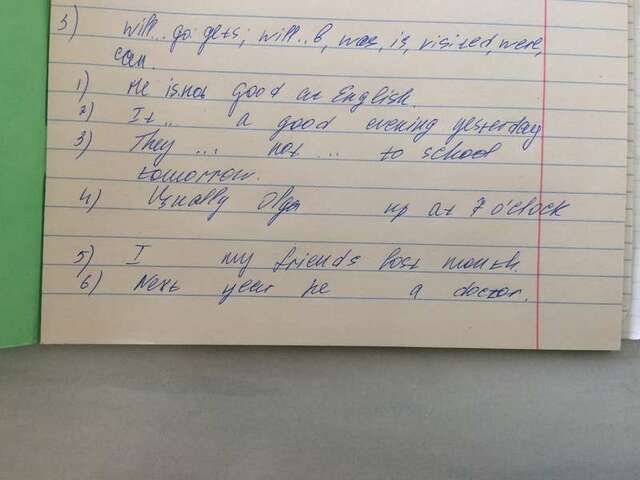 3) will...go; gets; will...b, was, is, visited, were,
can.
1) He is not good at English.
2) It ... a good evening yesterday
3) They ... not ... to school
tomorrow.
4) Usually Olga up at 7 o'clock
5) I my friends last month.
6) Next year he a doctor.